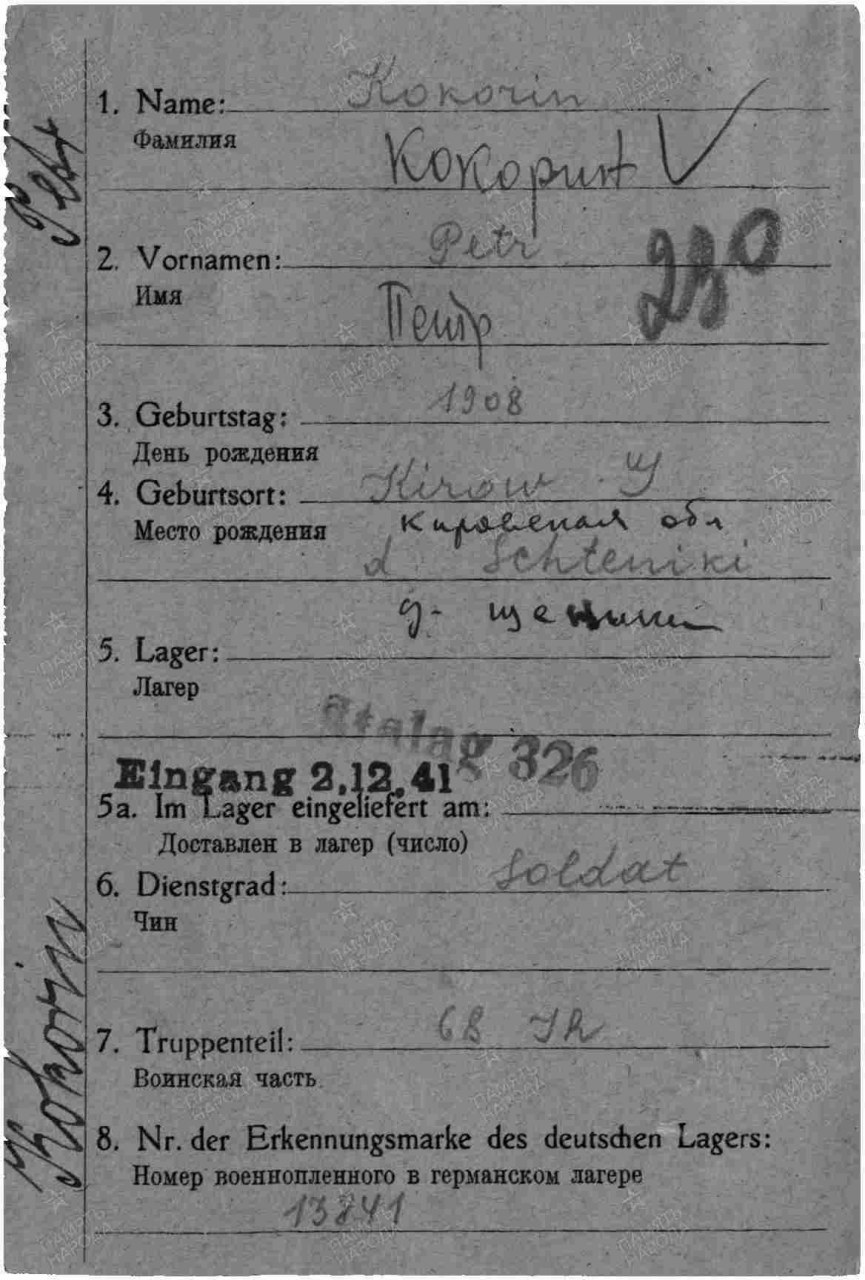 1. Name: Kokorin
Фамилия
Кокорин V
2. Vornamen: Petr
Имя
230
Петр
3. Geburtstag: 1908
День рождения
4. Geburtsort: Kirow
Место рождения
Кировская обл
d Schteniki
д-
5. Lager:
Лагер
Stalag 326
Eingang 2.12.41
5a. Im Lager eingeliefert am:
Доставлен в лагер (число)
6. Dienstgrad: Soldat
Чин
7. Truppenteil: 68
Воинская часть
8. Nr. der Erkennungsmarke des deutschen Lagers:
Номер военнопленного в германском лагере
13841
Petr
Kokorin
ПАМЯТЬ НАРОДА